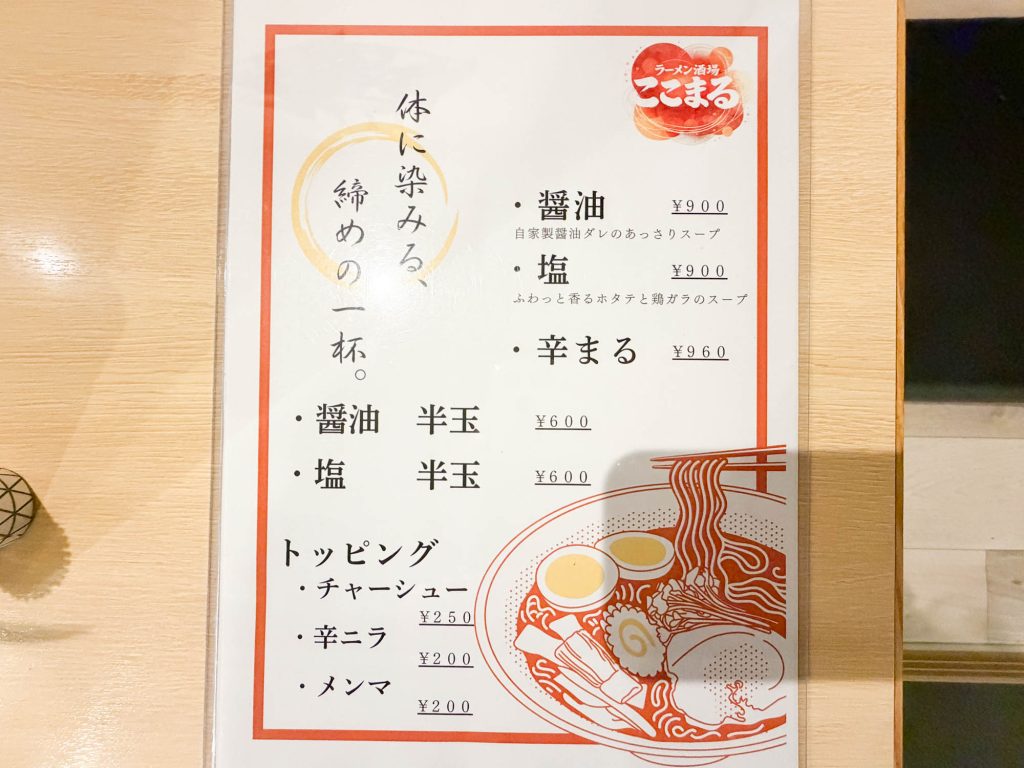 ラーメン酒場
ここまる
体に染みる、
締めの一杯。
・醤油 ¥900
自家製醤油ダレのあっさりスープ
・塩 ¥900
ふわっと香るホタテと鶏ガラのスープ
・辛まる ¥960
・醤油 半玉 ¥600
・塩 半玉 ¥600
トッピング
・チャーシュー
¥250
・辛ニラ
¥200
・メンマ
¥200